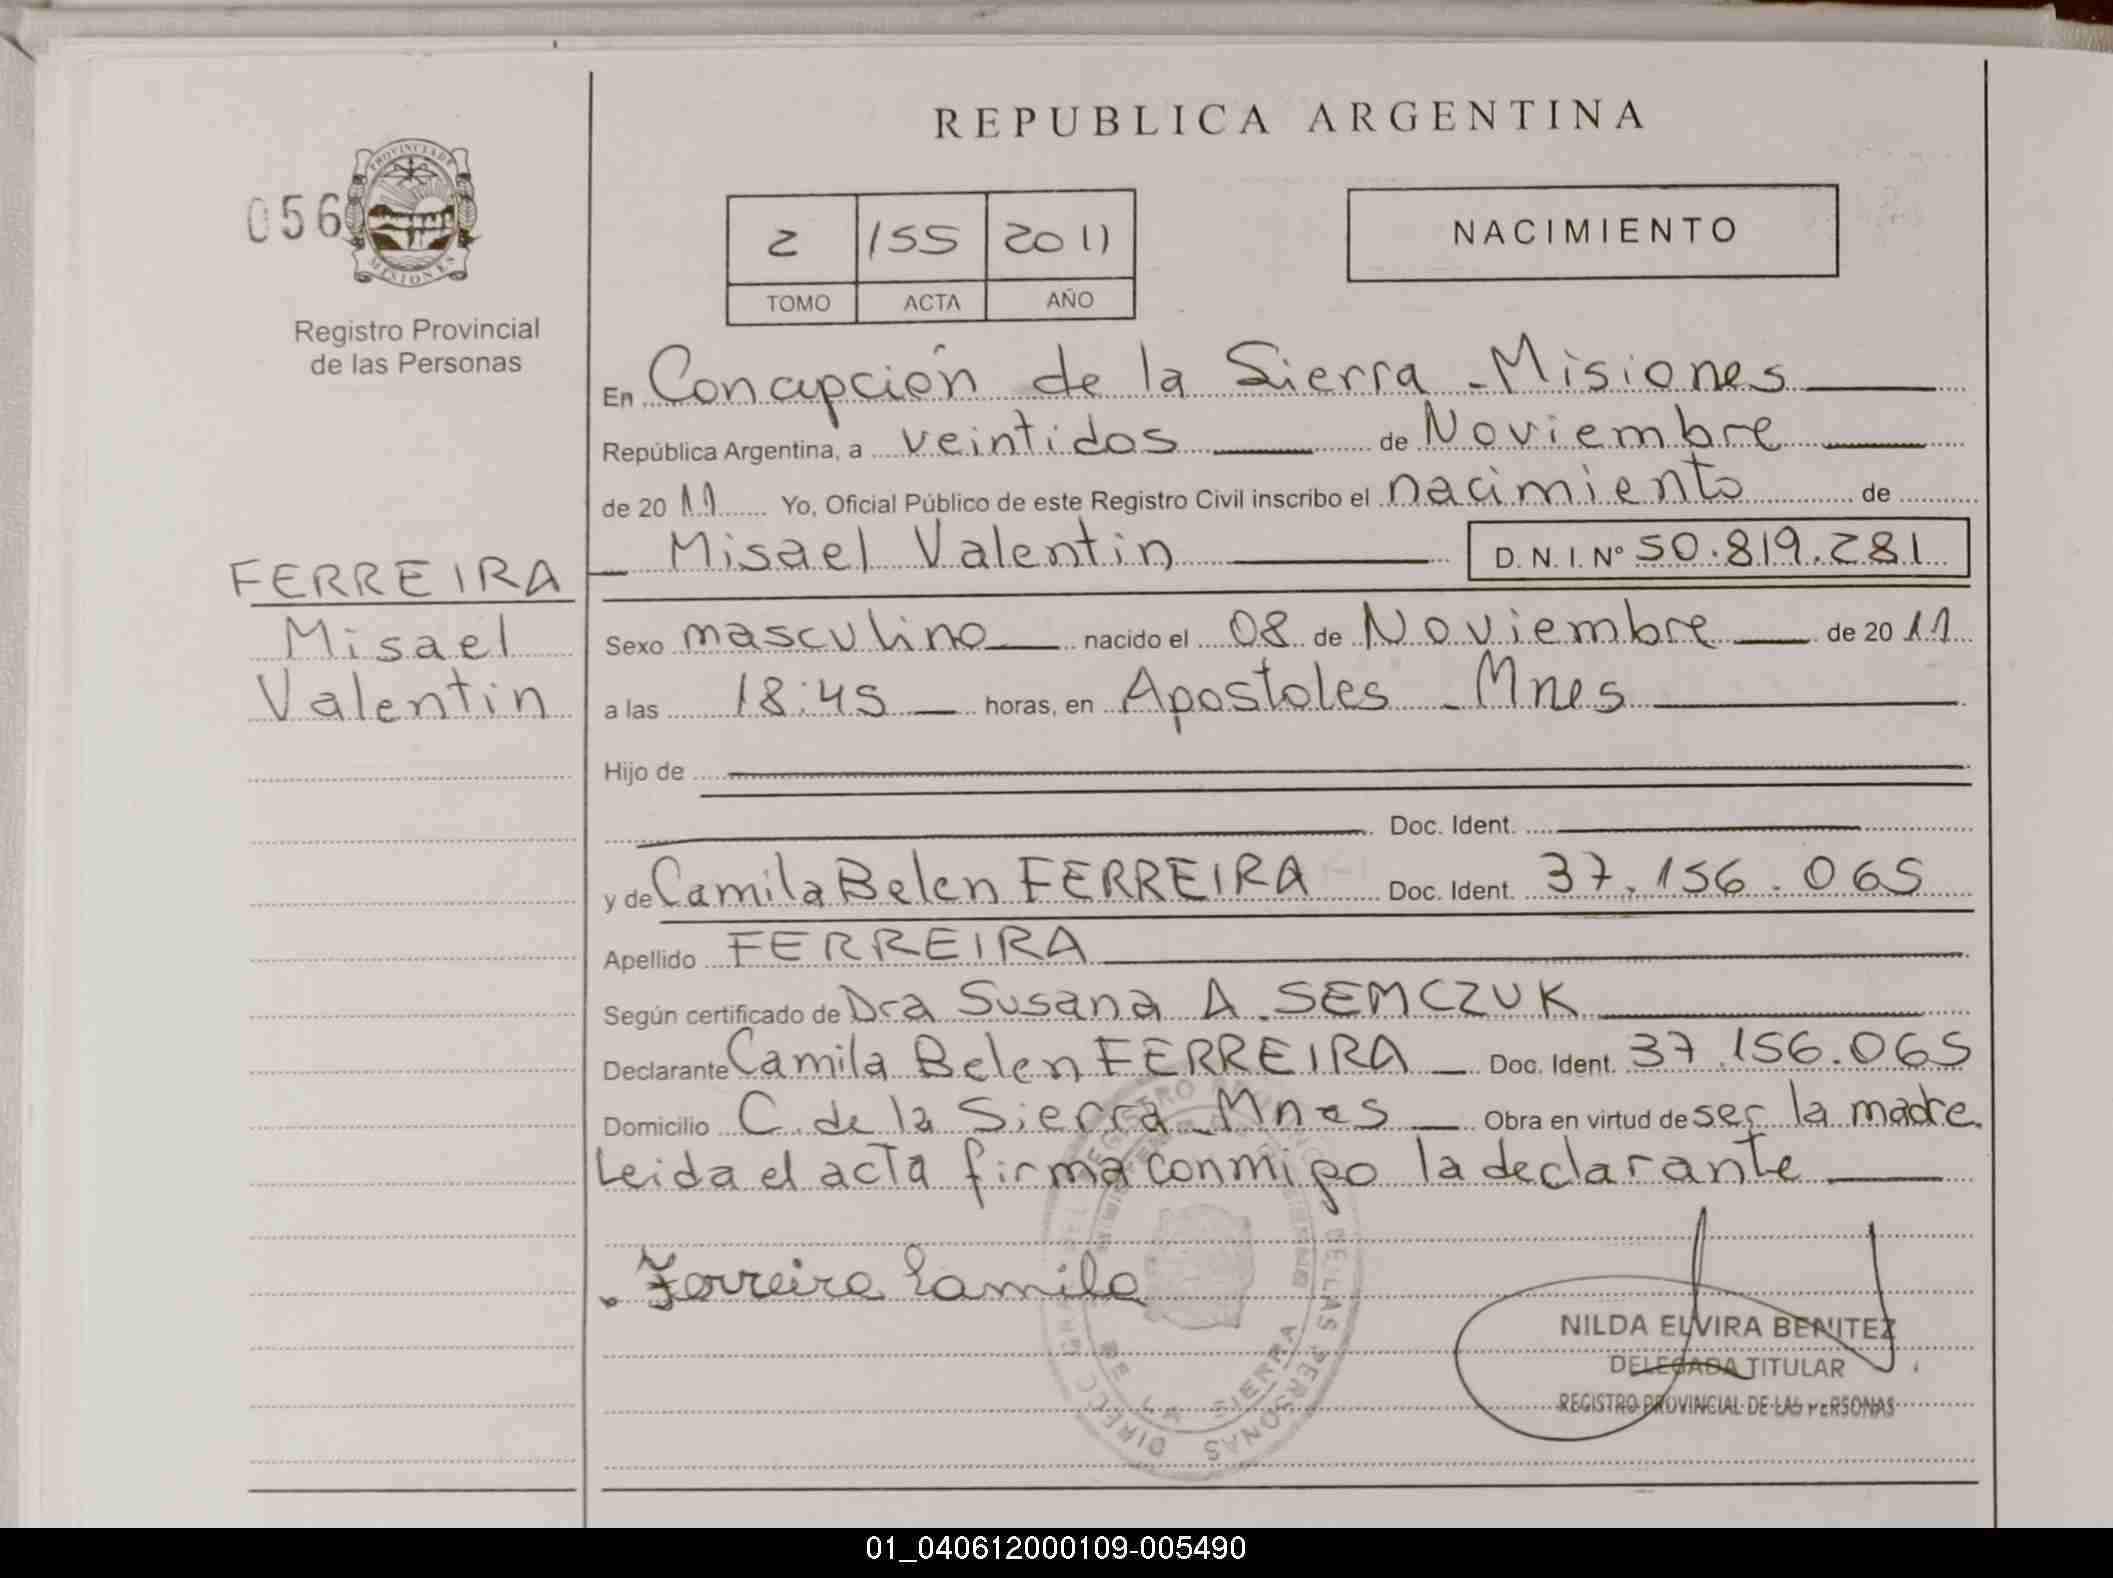 REPUBLICA ARGENTINA
056
PROVINCIA DE
MISIONES
2 155 2011
TOMO ACTA AÑO
NACIMIENTO
Registro Provincial
de las Personas
En Concepción de la Sierra - Misiones
República Argentina, a veintidos de Noviembre
de 2011 Yo, Oficial Público de este Registro Civil inscribo el nacimiento de
Misael Valentin D.N.I. Nº 50.819.281
FERREIRA
Misael
Valentin
Sexo masculino nacido el 08 de Noviembre de 2011
a las 18:45 horas, en Apostoles - Mnes
Hijo de
Doc. Ident.
y de Camila Belen FERREIRA Doc. Ident. 37.156.065
Apellido FERREIRA
Según certificado de Dra Susana A. SEMCZUK
Declarante Camila Belen FERREIRA Doc. Ident. 37.156.065
Domicilio C. de la Sierra - Mnes Obra en virtud de ser la madre.
Leida el acta firma conmigo la declarante
Ferreira Camila
DE LAS PERSONAS
DE LA SIERRA
NILDA ELVIRA BENITEZ
DELEGADA TITULAR
REGISTRO PROVINCIAL DE LAS PERSONAS
01_040612000109-005490